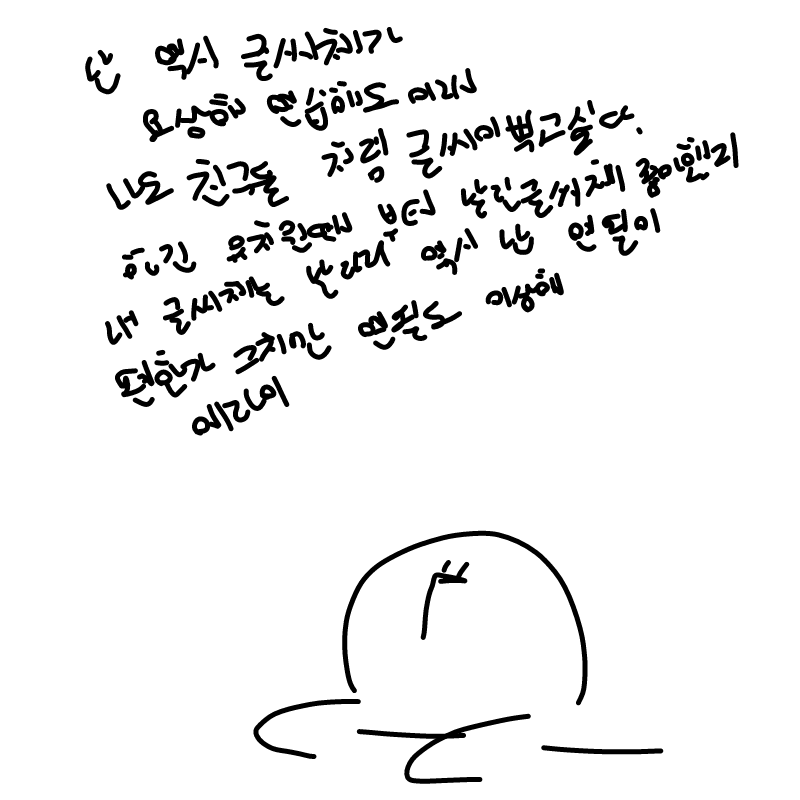 난 역시 글씨체가
요상해 연습해도 이러니
나도 친구들 처럼 글씨이쁘고싶다.
하긴 유치원때 부터 날린글씨체
내 글씨체는 날라리 역시 난 연필이
편한가 그치만 연필도 이상해